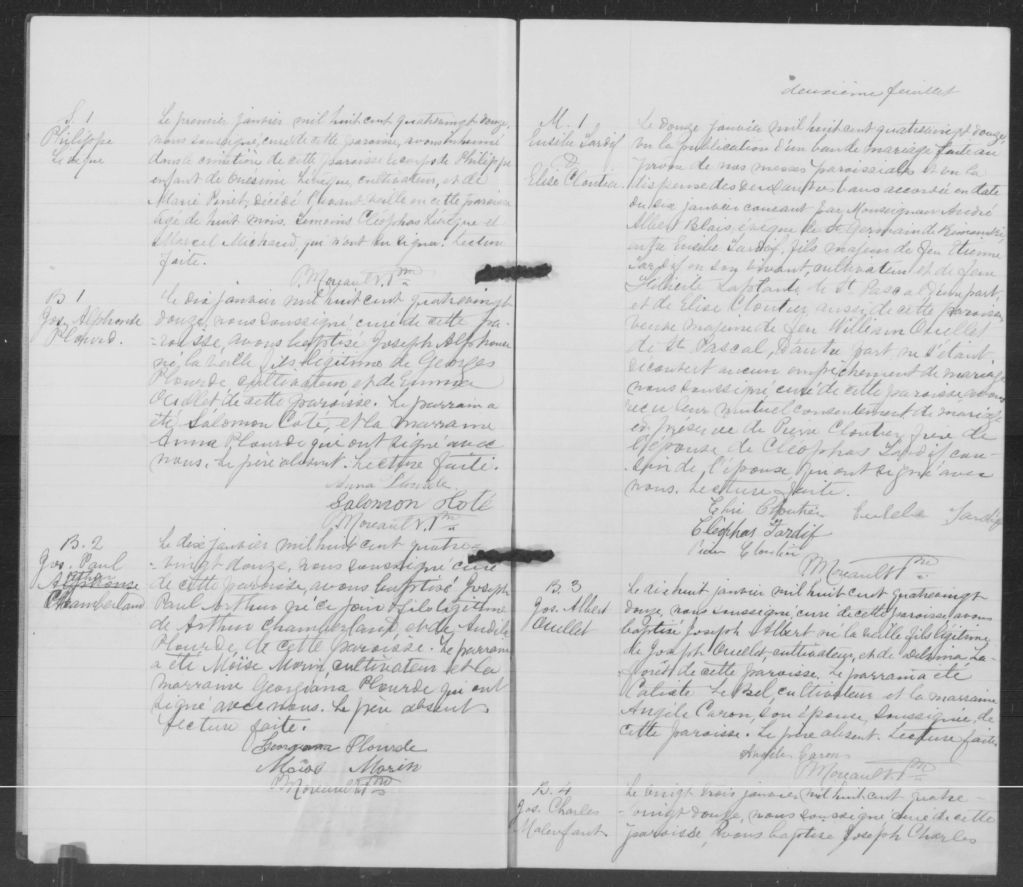 S. 1
Philippe
Levêque
Le premier janvier mil huit cent quatrevingt douze,
nous soussigné, curé de cette paroisse, avons inhumé
dans le cimetière de cette paroisse le corps de Philippe
enfant de Onésime Levêque, cultivateur, et de
Marie Pinet, décédé l'avant veille en cette paroisse
agé de huit mois. Temoins Cléophas Levêque et
Marcel Michaud qui n'ont su signer. Lecture
faite.
Moreault Ptre
B 1
Jos. Alphonse
Plourd.
Le dix janvier mil huit cent quatrevingt
douze, nous soussigné curé de cette pa-
-roisse, avons baptisé Joseph Alphonse
né la veille fils légitime de Georges
Plourde, cultivateur et de Emma
Ouellet de cette paroisse. Le parrain a
été Salomon Coté, et la marraine
Anna Plourde qui ont signé avec
nous. Le père absent. Lecture faite.
Anna
Salomon Koté
Moreault Ptre
B. 2
Jos. Paul
Arthur
Alphonse
Chamberland
Le dix janvier mil huit cent quatre-
-vingt douze, nous soussigné curé
de cette paroisse, avons baptisé Joseph
Paul Arthur né ce jour fils légitime
de Arthur Chamberland, et de
Plourde, de cette paroisse. Le parrain
a été Moïse Morin, cultivateur et la
marraine Georgiana Plourde qui ont
signé avec nous. Le père absent
Lecture faite.
Plourde
Moïse Morin
Moreault Ptre
deuxième feuillet
M. 1
Eusèbe Tardif
&
Elise Cloutier
Le douze janvier mil huit cent quatrevingt douze,
vu la publication d'un ban de mariage faite au
prône de nos messes paroissiales et vu la
dispense des deux autres bans accordée en date
du dix janvier courant par Monseigneur André
Albert Blais, évêque de St Germain de Rimouski,
entre Eusèbe Tardif, fils majeur de feu Etienne
Tardif en son vivant, cultivateur et de feue
Laplante de St Pascal d'une part,
et de Elise Cloutier aussi de cette paroisse
veuve majeure de feu William Ouellet
de St Pascal, d'autre part, ne s'étant
découvert aucun empêchement de mariage
nous soussigné curé de cette paroisse avons
reçu leur mutuel consentement de mariage
en présence de Pierre Cloutier, frère de
l'épouse, de Cléophas Tardif cou-
-sin de l'époux, qui ont signé avec
nous. Lecture faite.
Tardif
Cléophas Tardif
Cloutier
Moreault Ptre
B. 3
Jos. Albert
Ouellet
Le dix huit janvier mil huit cent quatrevingt
douze, nous soussigné curé de cette paroisse avons
baptisé Joseph Albert né la veille fils légitime
de Joseph Ouellet, cultivateur, et de Delvina La-
-forêt de cette paroisse. Le parrain a été
Calixte Le Bel, cultivateur et la marraine
Angèle Caron, son épouse, soussignée, de
cette paroisse. Le père absent. Lecture faite.
Angèle Caron
Moreault Ptre
B. 4
Jos. Charles
Malenfant
Le vingt trois janvier mil huit cent quatre-
-vingt douze, nous soussigné curé de cette
paroisse, avons baptisé Joseph Charles